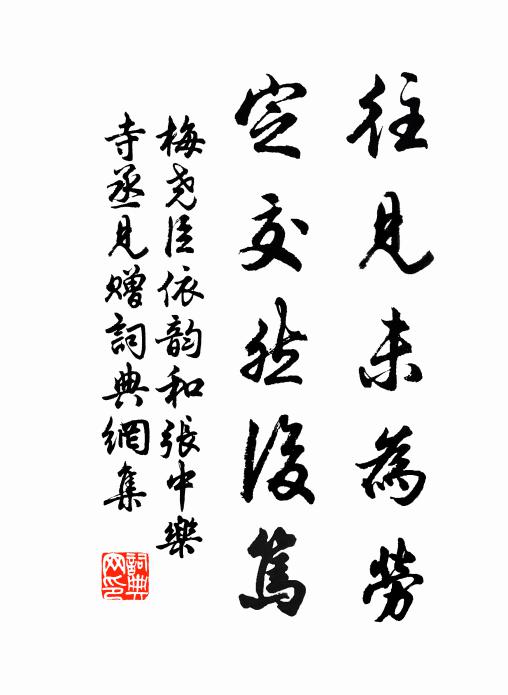 往見未為勞
定交然後篤
梅堯臣依韵和張中樂
寺丞見贈詞典網集
詞典網印